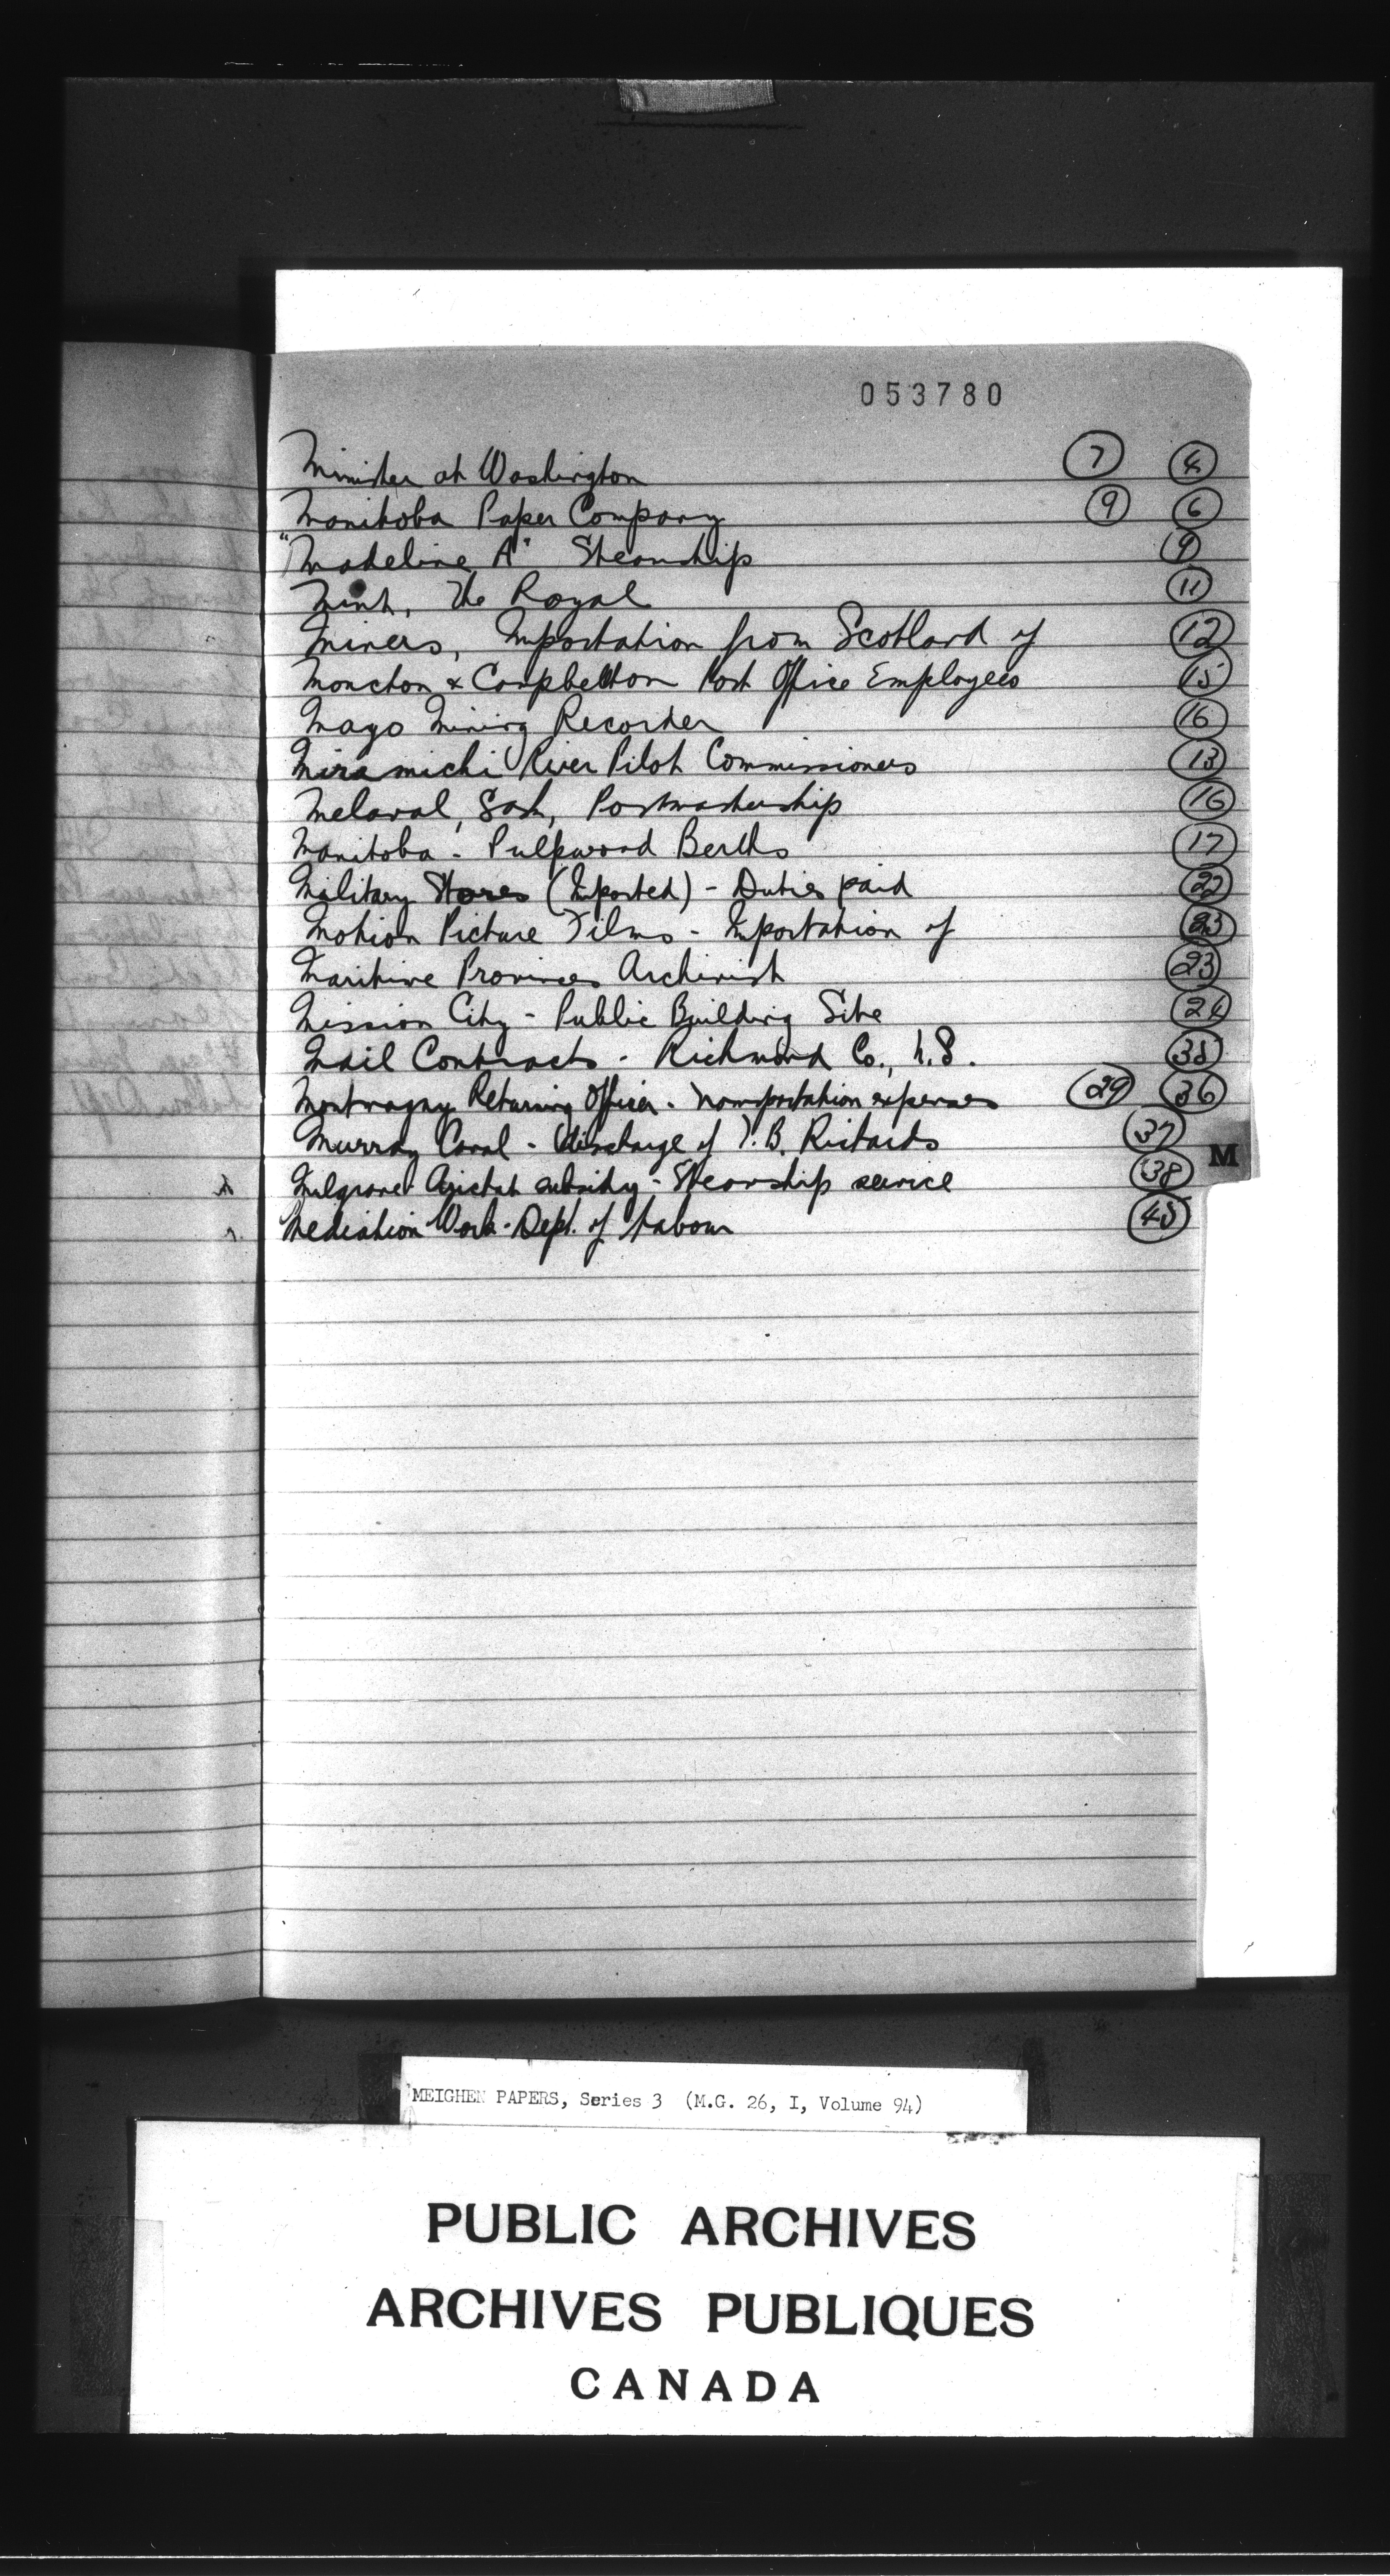 053780
Minister at Washington 7 4
Manitoba Paper Company 9 6
"Madeline A" Steamship 9
Mint, The Royal 11
Miners, Importation from Scotland of 12
Moncton & Campbellton Post Office Employees 15
Mayo Mining Recorder 16
Miramichi River Pilot Commissioners 13
Melaval, Sask, Postmastership 16
Manitoba - Pulpwood Berths 17
Military Stores (Imported) - Duties paid 22
Motion Picture Films - Importation of 23
Maritime Provinces Archivist 23
Mission City - Public Building Site 24
Mail Contracts - Richmond Co., N.S. 35
Montmagny Returning Officer - Transportation expenses 29 36
Murray Canal - discharge of T.B. Richards 37
M
Mulgrave Arichat subsidy - Steamship service 38
Mediation Work - Dept. of Labour 45
MEIGHEN PAPERS, Series 3 (M.G. 26, I, Volume 94)
PUBLIC ARCHIVES
ARCHIVES PUBLIQUES
CANADA